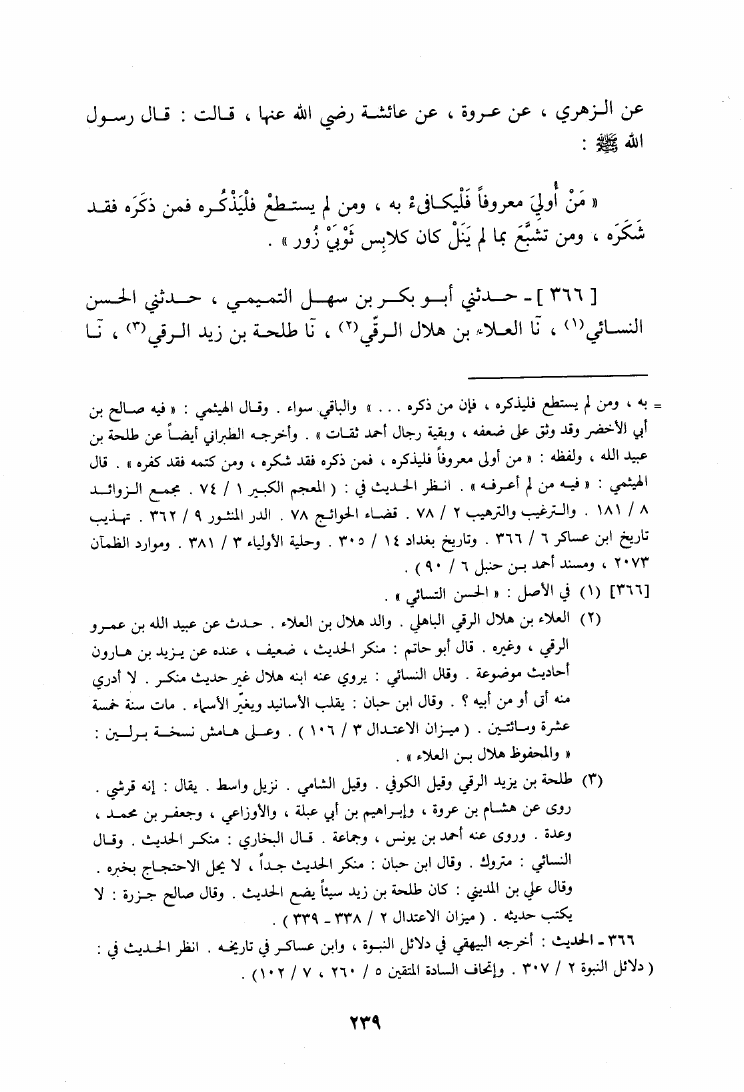 عن الـزهري ، عن عـروة ، عن عائشـة رضي الله عنها ، قـالت : قـال رسـول
الله ﷺ :
« مَنْ أُوليَ معروفاً فَلْيكـافىءْ به ، ومن لم يستـطعْ فلْيَذْكُـره فمن ذكَرَه فقـد
شَكَرَه ، ومن تشبَّعَ بما لم يَنَلْ كان كلابِس ثَوْبَيْ زُور » .
[ ٣٦٦ ] ـ حـدثني أبـو بكـر بن سهـل التميمي ، حـدثني الحسن
النسـائي(١) ، نَا العـلاء بن هلال الـرقّي(٢) ، نَا طلحـة بن زيد الـرقي(٣) ، نَـا
= به ، ومن لم يستطع فليذكره ، فإن من ذكره . . . » والباقي سواء . وقـال الهيثمي : « فيه صـالح بن
أبي الأخضر وقد وثق على ضعفه ، وبقية رجال أحمد ثقـات » . وأخرجـه الطبراني أيضـاً عن طلحة بن
عبيد الله ، ولفظه : « من أولى معروفاً فليذكره ، فمن ذكره فقد شكره ، ومن كتمه فقد كفره » . قال
الهيثمي : « فيـه من لم أعـرفـه » . انـظر الحـديث في : ( المعجم الكبـير ١ / ٧٤ . مجمـع الـزوائـد
٨ / ١٨١ . والـترغيب والترهيب ٢ / ٧٨ . قضـاء الحوائـج ٧٨ . الدر المنثـور ٩ / ٣٦٢ . تهـذيب
تاريخ ابن عساكر ٦ / ٣٦٦ . وتاريخ بغداد ١٤ / ٣٠٥ . وحلية الأولياء ٣ / ٣٨١ . وموارد الظمآن
٢٠٧٣ ، ومسند أحمد بـن حنبل ٦ / ٩٠ ) .
[٣٦٦] (١) في الأصل : « الحسن التسائي » .
(٢) العلاء بن هلال الرقي الباهلي . والد هلال بن العلاء . حـدث عن عبيد الله بن عمـرو
الرقي ، وغيره . قال أبو حاتم : منكر الحديث ، ضعيف ، عنده عن يـزيد بن هـارون
أحاديث موضوعة . وقال النسائي : يروي عنه ابنه هلال غير حديث منكـر . لا أدري
منه أتى أو من أبيه ؟ . وقال ابن حبان : يقلب الأسانيد ويغيّر الأسماء . مات سنة خمسة
عشرة ومـائتـين . ( ميـزان الاعتـدال ٣ / ١٠٦ ) . وعـلى هـامش نسخـة بـرلـين :
« والمحفوظ هلال بـن العلاء » .
(٣) طلحة بن يزيد الرقي وقيل الكوفي . وقيل الشامي . نزيل واسط . يقال : إنه قرشي .
روى عن هشـام بن عروة ، وإبـراهيم بن أبي عبلة ، والأوزاعي ، وجعفـر بن محمـد ،
وعدة . وروى عنه أحمد بن يونس ، وجماعة . قـال البخاري : منكـر الحديث . وقـال
النسائي : متروك . وقال ابن حبان : منكر الحديث جـداً ، لا يحل الاحتجـاج بخبره .
وقال علي بن المديني : كان طلحة بن زيد سيئاً يضع الحديث . وقال صالح جـزرة : لا
يكتب حديثه . ( ميزان الاعتدال ٢ / ٣٣٨ ـ ٣٣٩ ) .
٣٦٦ ـ الحديث : أخرجه البيهقي في دلائل النبـوة ، وابن عسـاكـر في تاريخـه . انظر الحـديث في :
( دلائل النبوة ٢ / ٣٠٧ . وإتحاف السادة المتقين ٥ / ٢٦٠ ، ٧ / ١٠٢) .
٢٣٩